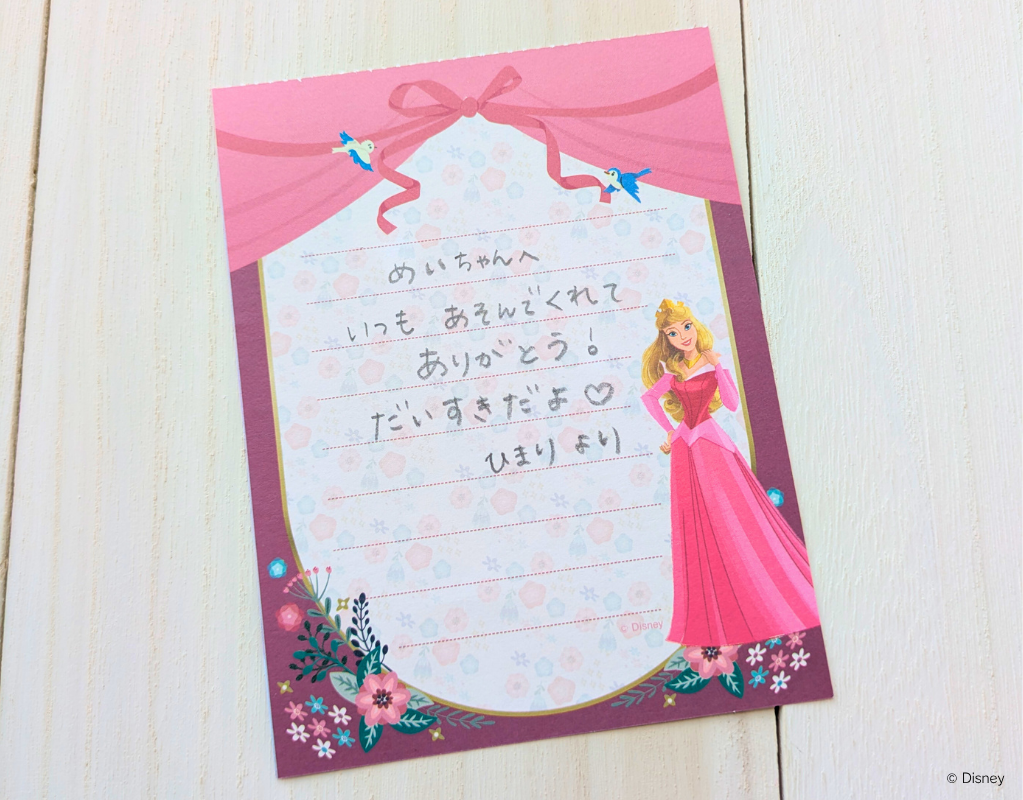 めいちゃんへ
いつも あそんでくれて
ありがとう！
だいすきだよ♡
ひまり より
© Disney
© Disney